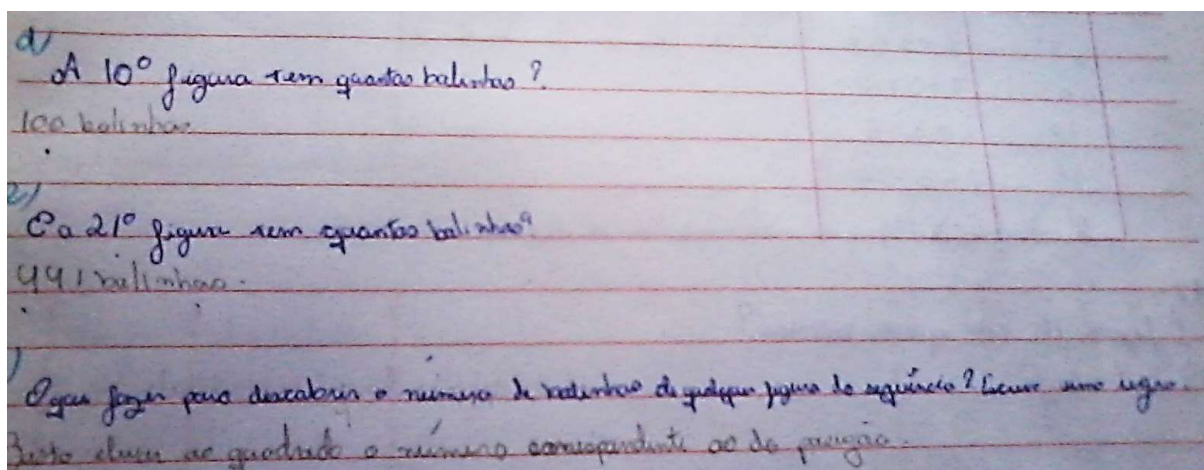 d)
A 10º figura tem quantas balinhas?
100 bolinhas
e)
E a 21º figura tem quantas bolinhas?
441 bolinhas.
)
O que fazer para descobrir o número de bolinhas de qualquer figura da sequência? Escreva uma regra.
Basta elevar ao quadrado o número correspondente ao da posição.